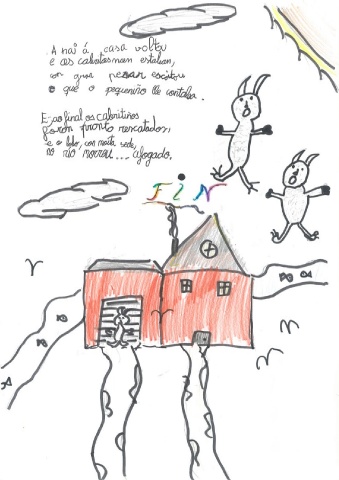 A nai á casa voltou
e as cabritas non estaban,
con gran pesar escoitou
o que o pequeniño lle contaba.
E ao final os cabritiños
foron pronto rescatados,
e o lobo, con moita sede,
no río morreu... afogado.
FIN